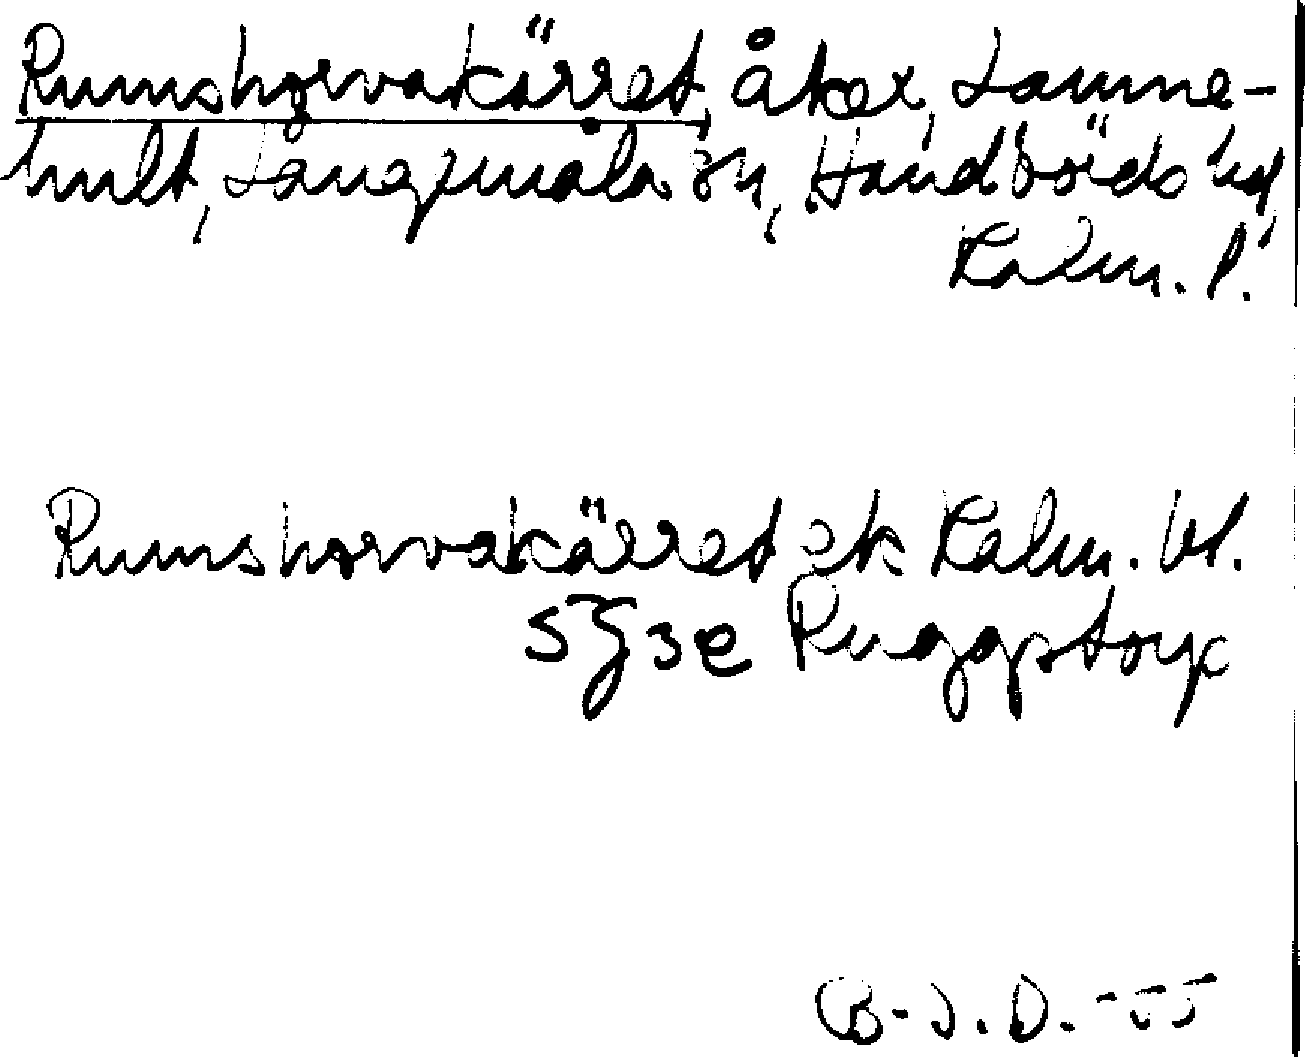 Rumshorvakärret, åker, Lamme-
hult, Långemåla sn, Handbörds hd,
Kalm. l.
Rumshorvakärret ek Kalm. bl.
5G3e Ruggstorp
B-J.D. -55